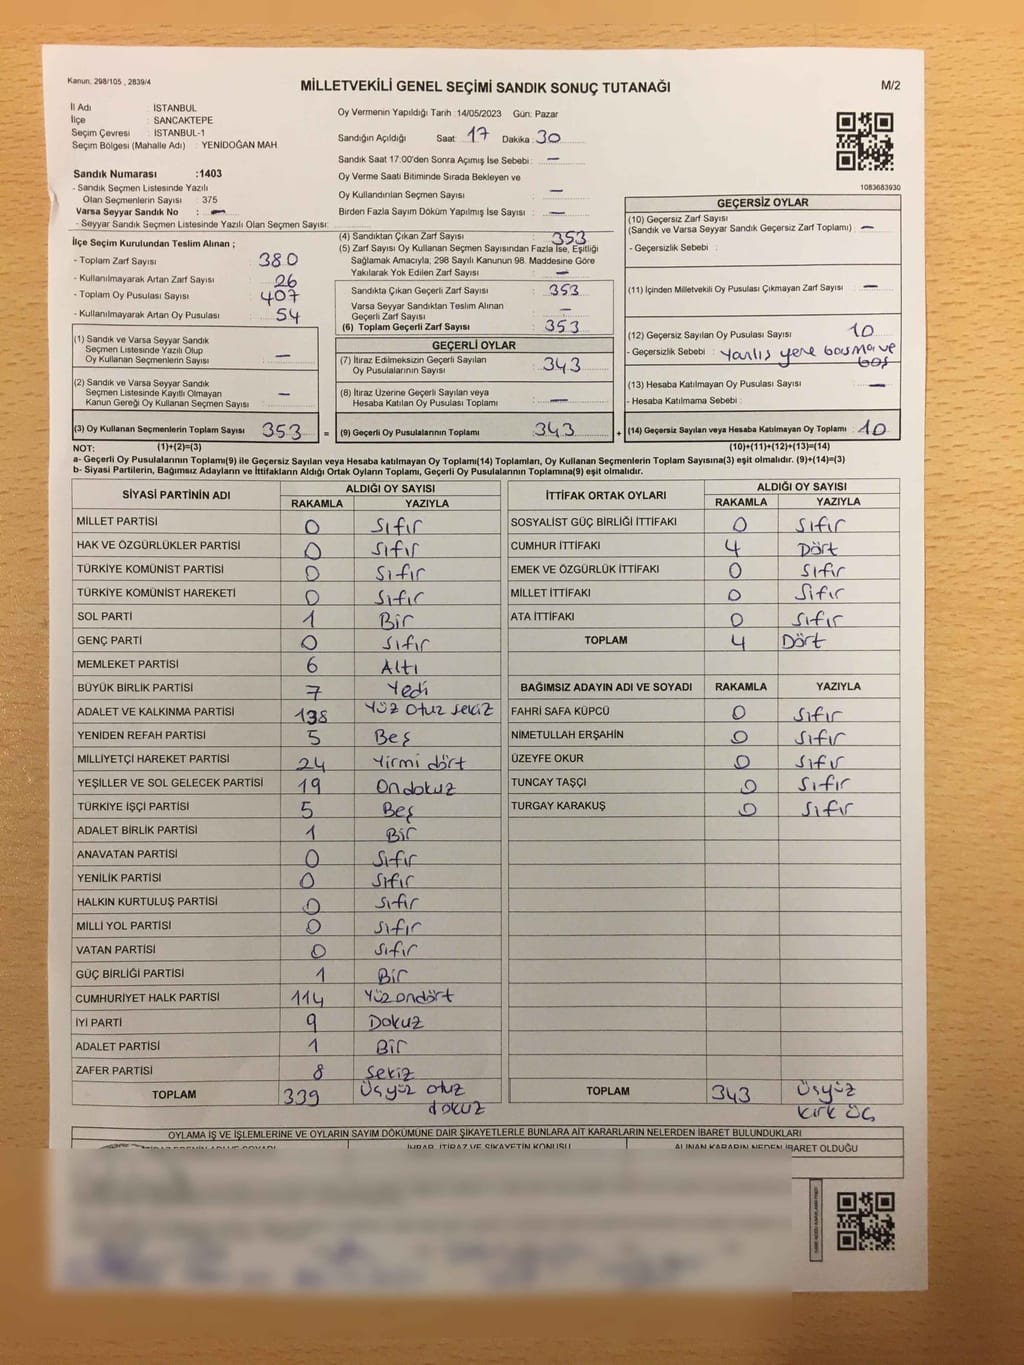 Kanun. 298/105 , 2839/4
MİLLETVEKİLİ GENEL SEÇİMİ SANDIK SONUÇ TUTANAĞI
M/2
İl Adı : İSTANBUL
İlçe : SANCAKTEPE
Seçim Çevresi : İSTANBUL-1
Seçim Bölgesi (Mahalle Adı) : YENİDOĞAN MAH
Sandık Numarası :1403
- Sandık Seçmen Listesinde Yazılı
Olan Seçmenlerin Sayısı : 375
Varsa Seyyar Sandık No : —
- Seyyar Sandık Seçmen Listesinde Yazılı Olan Seçmen Sayısı:
İlçe Seçim Kurulundan Teslim Alınan ;
- Toplam Zarf Sayısı 380
- Kullanılmayarak Artan Zarf Sayısı 26
- Toplam Oy Pusulası Sayısı 407
- Kullanılmayarak Artan Oy Pusulası 54
(1) Sandık ve Varsa Seyyar Sandık
Seçmen Listesinde Yazılı Olup
Oy Kullanan Seçmenlerin Sayısı —
(2) Sandık ve Varsa Seyyar Sandık
Seçmen Listesinde Kayıtlı Olmayan
Kanun Gereği Oy Kullanan Seçmen Sayısı —
(3) Oy Kullanan Seçmenlerin Toplam Sayısı 353
Oy Vermenin Yapıldığı Tarih :14/05/2023 Gün: Pazar
Sandığın Açıldığı Saat: 17 Dakika : 30
Sandık Saat 17:00'den Sonra Açımış İse Sebebi : —
Oy Verme Saati Bitiminde Sırada Bekleyen ve
Oy Kullandırılan Seçmen Sayısı : —
Birden Fazla Sayım Döküm Yapılmış İse Sayısı : —
(4) Sandıktan Çıkan Zarf Sayısı : 353
(5) Zarf Sayısı Oy Kullanan Seçmen Sayısından Fazla İse, Eşitliği
Sağlamak Amacıyla, 298 Sayılı Kanunun 98. Maddesine Göre
Yakılarak Yok Edilen Zarf Sayısı : —
Sandıkta Çıkan Geçerli Zarf Sayısı : 353
Varsa Seyyar Sandıktan Teslim Alınan
Geçerli Zarf Sayısı : —
(6) Toplam Geçerli Zarf Sayısı : 353
GEÇERLİ OYLAR
(7) İtiraz Edilmeksizin Geçerli Sayılan
Oy Pusulalarının Sayısı : 343
(8) İtiraz Üzerine Geçerli Sayılan veya
Hesaba Katılan Oy Pusulası Toplamı : —
= (9) Geçerli Oy Pusulalarının Toplamı : 343
1083683930
GEÇERSİZ OYLAR
(10) Geçersiz Zarf Sayısı
(Sandık ve Varsa Seyyar Sandık Geçersiz Zarf Toplamı) : —
- Geçersizlik Sebebi :
(11) İçinden Milletvekili Oy Pusulası Çıkmayan Zarf Sayısı : —
(12) Geçersiz Sayılan Oy Pusulası Sayısı : 10
- Geçersizlik Sebebi : Yanlış yere basma ve
boş
(13) Hesaba Katılmayan Oy Pusulası Sayısı : —
- Hesaba Katılmama Sebebi :
+ (14) Geçersiz Sayılan veya Hesaba Katılmayan Oy Toplamı : 10
NOT: (1)+(2)=(3) (10)+(11)+(12)+(13)=(14)
a- Geçerli Oy Pusulalarının Toplamı(9) ile Geçersiz Sayılan veya Hesaba katılmayan Oy Toplamı(14) Toplamları, Oy Kullanan Seçmenlerin Toplam Sayısına(3) eşit olmalıdır. (9)+(14)=(3)
b- Siyasi Partilerin, Bağımsız Adayların ve İttifakların Aldığı Ortak Oyların Toplamı, Geçerli Oy Pusulalarının Toplamına(9) eşit olmalıdır.
SİYASİ PARTİNİN ADI ALDIĞI OY SAYISI
RAKAMLA YAZIYLA
MİLLET PARTİSİ 0 Sıfır
HAK VE ÖZGÜRLÜKLER PARTİSİ 0 Sıfır
TÜRKİYE KOMÜNİST PARTİSİ 0 Sıfır
TÜRKİYE KOMÜNİST HAREKETİ 0 Sıfır
SOL PARTİ 1 Bir
GENÇ PARTİ 0 Sıfır
MEMLEKET PARTİSİ 6 Altı
BÜYÜK BİRLİK PARTİSİ 7 Yedi
ADALET VE KALKINMA PARTİSİ 138 Yüz otuz sekiz
YENİDEN REFAH PARTİSİ 5 Beş
MİLLİYETÇİ HAREKET PARTİSİ 24 Yirmi dört
YEŞİLLER VE SOL GELECEK PARTİSİ 19 Ondokuz
TÜRKİYE İŞÇİ PARTİSİ 5 Beş
ADALET BİRLİK PARTİSİ 1 Bir
ANAVATAN PARTİSİ 0 Sıfır
YENİLİK PARTİSİ 0 Sıfır
HALKIN KURTULUŞ PARTİSİ 0 Sıfır
MİLLİ YOL PARTİSİ 0 Sıfır
VATAN PARTİSİ 0 Sıfır
GÜÇ BİRLİĞİ PARTİSİ 1 Bir
CUMHURİYET HALK PARTİSİ 114 Yüzondört
İYİ PARTİ 9 Dokuz
ADALET PARTİSİ 1 Bir
ZAFER PARTİSİ 8 Sekiz
TOPLAM 339 Üçyüz otuz
dokuz
İTTİFAK ORTAK OYLARI ALDIĞI OY SAYISI
RAKAMLA YAZIYLA
SOSYALİST GÜÇ BİRLİĞİ İTTİFAKI 0 Sıfır
CUMHUR İTTİFAKI 4 Dört
EMEK VE ÖZGÜRLÜK İTTİFAKI 0 Sıfır
MİLLET İTTİFAKI 0 Sıfır
ATA İTTİFAKI 0 Sıfır
TOPLAM 4 Dört
BAĞIMSIZ ADAYIN ADI VE SOYADI RAKAMLA YAZIYLA
FAHRİ SAFA KÜPCÜ 0 Sıfır
NİMETULLAH ERŞAHİN 0 Sıfır
ÜZEYFE OKUR 0 Sıfır
TUNCAY TAŞÇI 0 Sıfır
TURGAY KARAKUŞ 0 Sıfır
TOPLAM 343 Üçyüz
kırk üç
OYLAMA İŞ VE İŞLEMLERİNE VE OYLARIN SAYIM DÖKÜMÜNE DAİR ŞİKAYETLERLE BUNLARA AİT KARARLARIN NELERDEN İBARET BULUNDUKLARI
İHBAR, İTİRAZ VE ŞİKAYETİN KONUSU ALINAN KARARIN NEDEN İBARET OLDUĞU